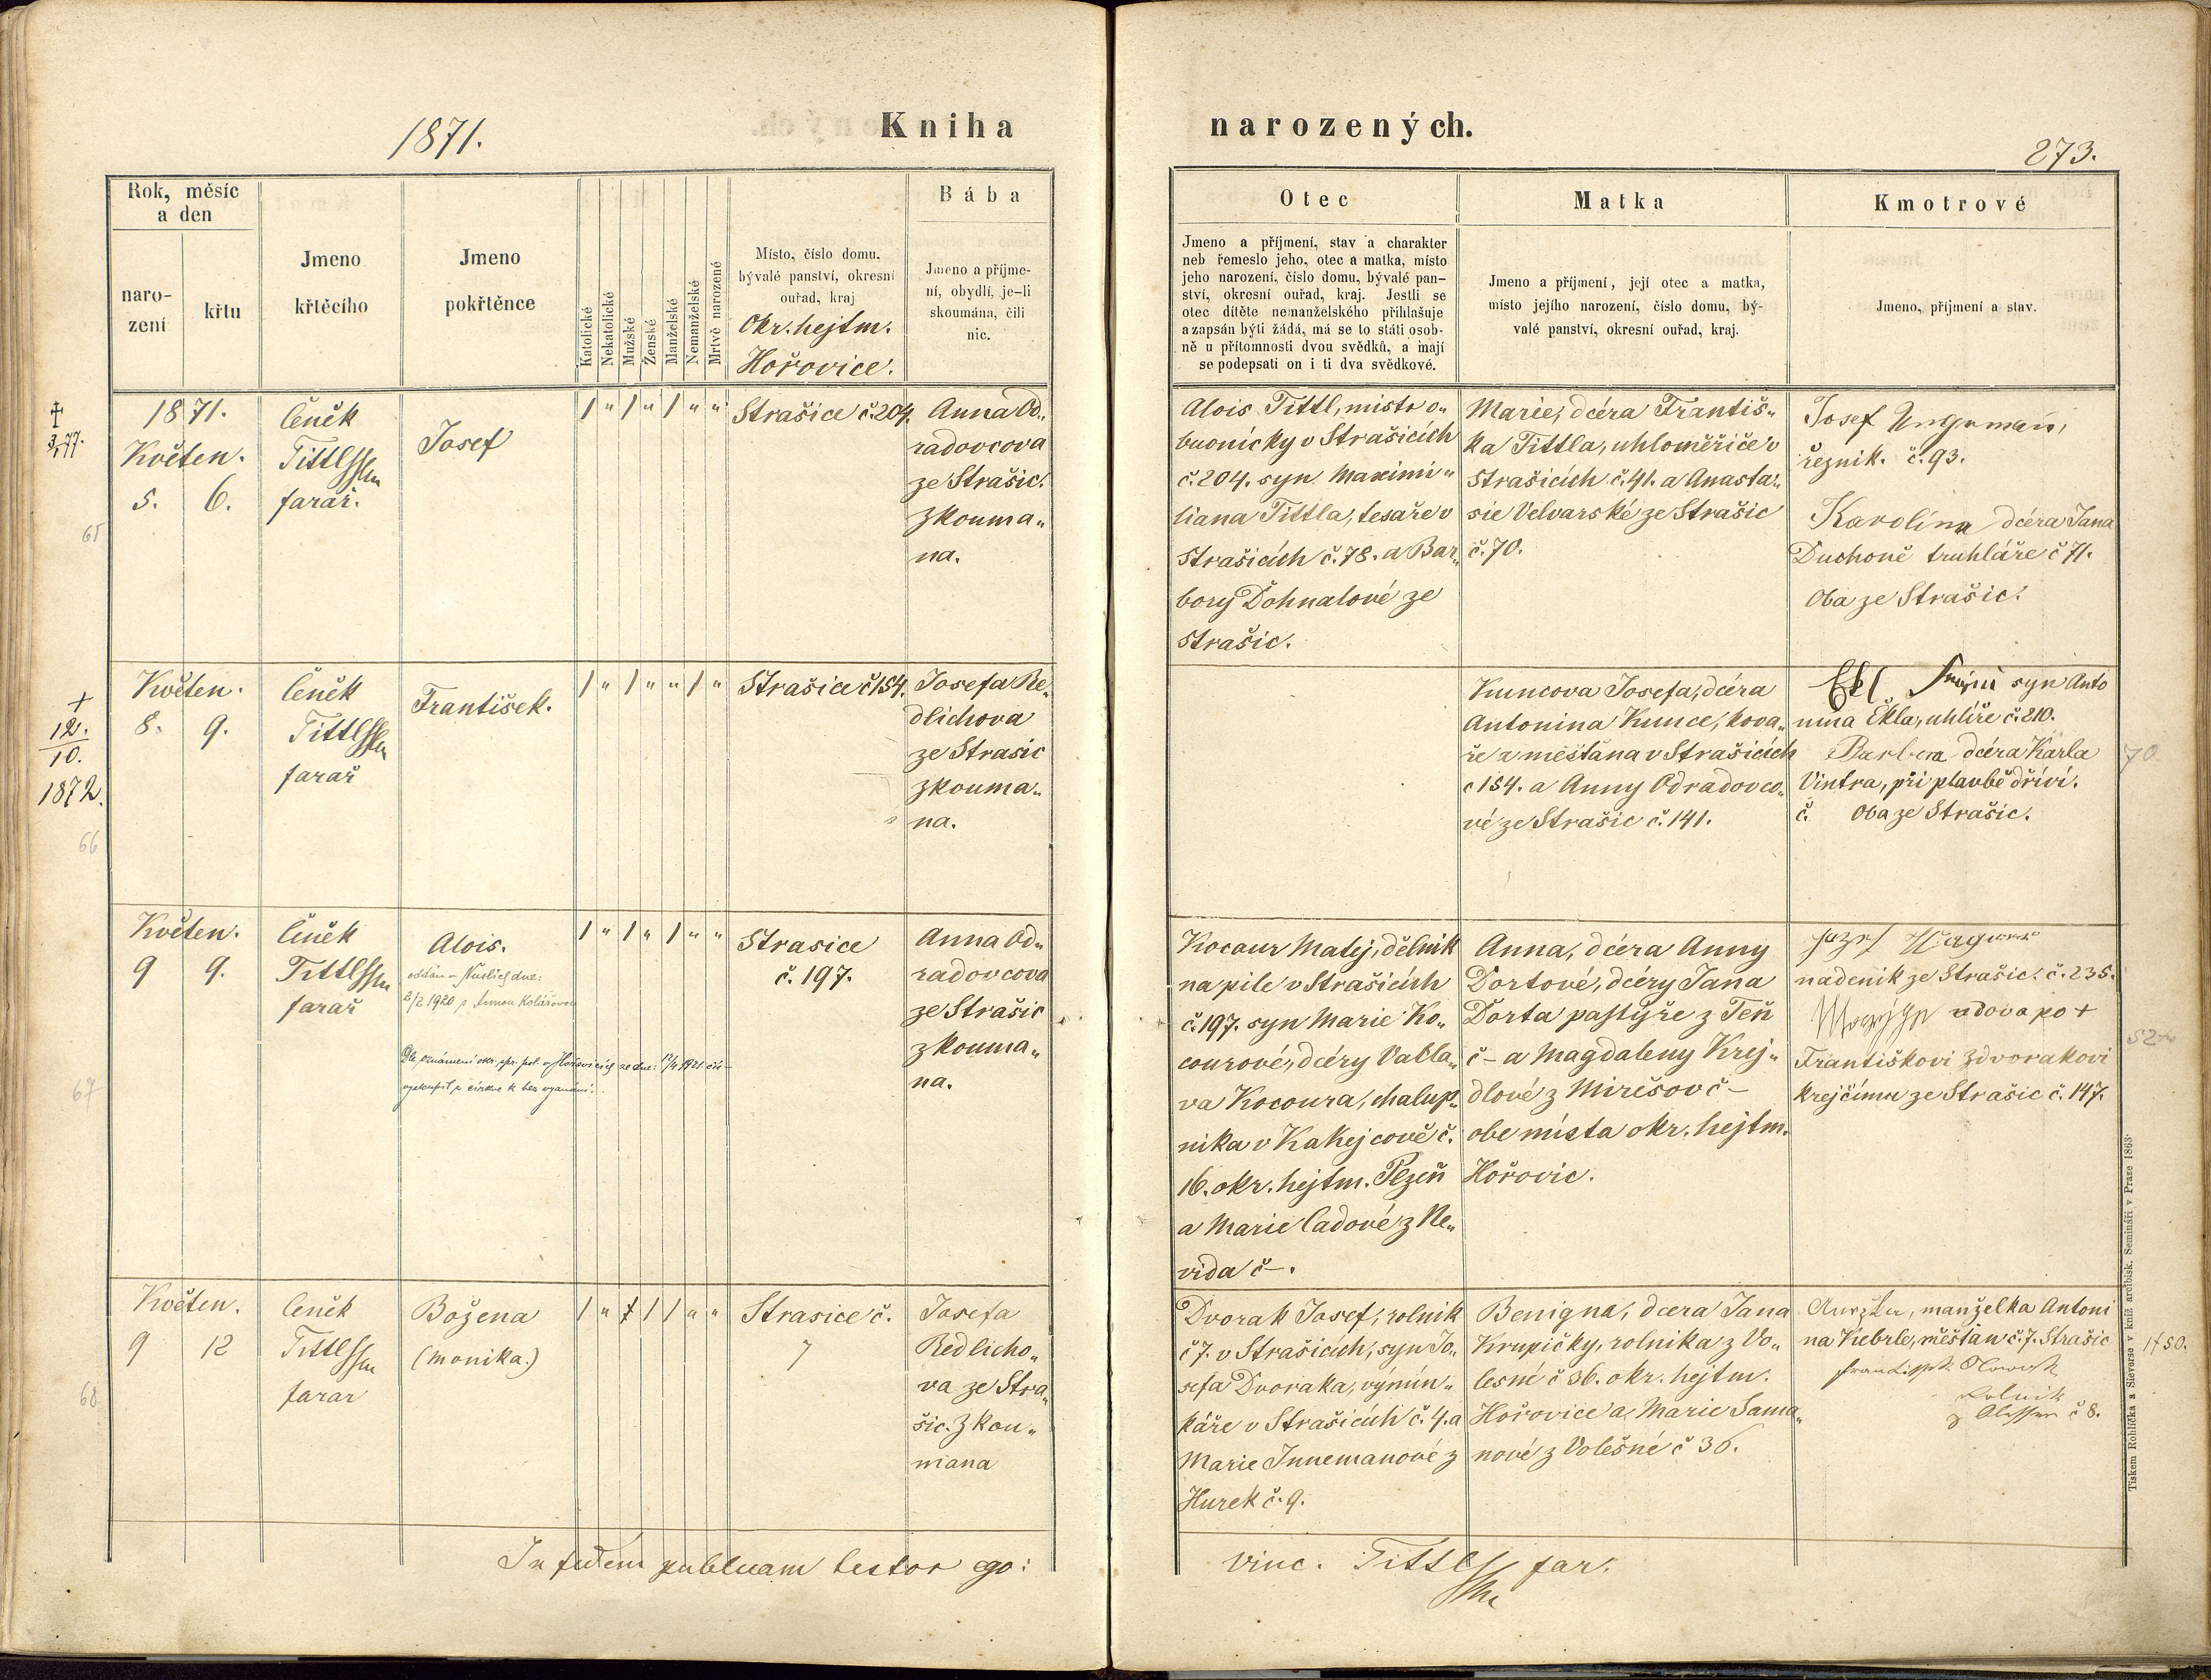 1871.
Kniha
narozených.
273.
Rok, měsíc
a den
naro-
zení
křtu
Jmeno
křtěcího
Jmeno
pokřtěnce
Katolické
Nekatolické
Mužské
Ženské
Manželské
Nemanželské
Mrtvě narozené
Místo, číslo domu,
bývalé panství, okresní
ouřad, kraj
Okr. hejtm.
Hořovice.
Bába
Jmeno a příjme-
ní, obydlí, je-li
skoumána, čili
nic.
Otec
Jmeno a příjmení, stav a charakter
neb řemeslo jeho, otec a matka, místo
jeho narození, číslo domu, bývalé pan-
ství, okresní ouřad, kraj. Jestli se
otec dítěte nemanželského přihlašuje
a zapsán býti žádá, má se to státi osob-
ně u přítomnosti dvou svědků, a mají
se podepsati on i ti dva svědkové.
Matka
Jmeno a příjmení, její otec a matka,
místo jejího narození, číslo domu, bý-
valé panství, okresní ouřad, kraj.
Kmotrové
Jmeno, příjmení a stav.
1871.
Květen.
5. 6.
65
Čeněk
Tittl
farář.
Josef
/ " / " / " "
Strašice č. 204.
Anna Od„
radovcova
ze Strašic.
zkouma„
na.
Alois Tittl, mistr o„
buvnický v Strašicích
č. 204. syn Maximi„
liana Tittla, tesaře v
Strašicích č. 78. a Bar„
bory Dohnalové ze
Strašic.
Marie, dcéra Františ„
ka Tittla, uhloměřiče v
Strašicích č. 41. a Anasta„
sie Velvarské ze Strašic
č. 70.
Josef Ungrman,
řezník. č. 93.
Karolína dcéra Jana
Duchoně truhláře č 71.
Oba ze Strašic.
+
12.
10.
1872.
66
Květen.
8. 9.
Čeněk
Tittl
farář
František.
/ " / " " / "
Strašice č 154.
Josefa Re„
dlichova
ze Strasic
zkouma„
na.
Kuncova Josefa, dcéra
Antonina Kunce, kova„
ře a měštana v Strašicích
č 154. a Anny Odradovco„
vé ze Strašic č. 141.
Ekl syn Anto
nína Ekla, uhlíře č. 210.
Barbora dcéra Karla
Vintra, při plavbě dříví.
č. Oba ze Strašic.
70
67
Květen.
9 9.
Čeněk
Tittl
farář
Alois.
2/2 1920 s Annou Kolářovou
/ " / " / " "
Strasice
č. 197.
Anna Od„
radovcova
ze Strašic
zkouma„
na.
Kocaur Matej, dělník
na pile v Strašicích
č. 197. syn Marie Ko„
courové, dcéry Václa„
va Kocoura, chalup„
nika v Kakejcově č.
16. okr. hejtm. Plzeň
a Marie Cadové z Ne„
vida č –.
Anna, dcéra Anny
Dortové, dcéry Jana
Dorta pastýře z Těň
č – a Magdaleny Krej„
dlové z Mirešov č –
obe místa okr. hejtm.
Hořovic.
nádeník ze Strašic. č. 235.
vdova po +
Františkovi Zdvorakovi
krejčímu ze Strašic č. 147.
68
Květen.
9 12
Čeněk
Tittl
farar
Božena
(Monika.)
Strasice č.
7
Josefa
Redlicho„
va ze Stra„
šic. Zkou„
mana
Dvorak Josef, rolník
č 7. v Strašicích, syn Jo„
sefa Dvoraka, výmin„
káře v Strašicích č. 4. a
Marie Innemanové z
Hurek č. 9.
Benigna, dcera Jana
Krupičky, rolníka z Vo„
lesné č 36. okr. hejtm.
Hořovice a Marie Sama„
nové z Volešné č 36.
manželka Antoni
na Kebrle, měšťan č. 7. Strašic
Rolnik
č 8.
In fidem publicam testor ego:
Vinc. Tittl far.
Tiskem Rohlíčka a Sieverse v kníž. arcibisk. Semináři v Praze 1863.